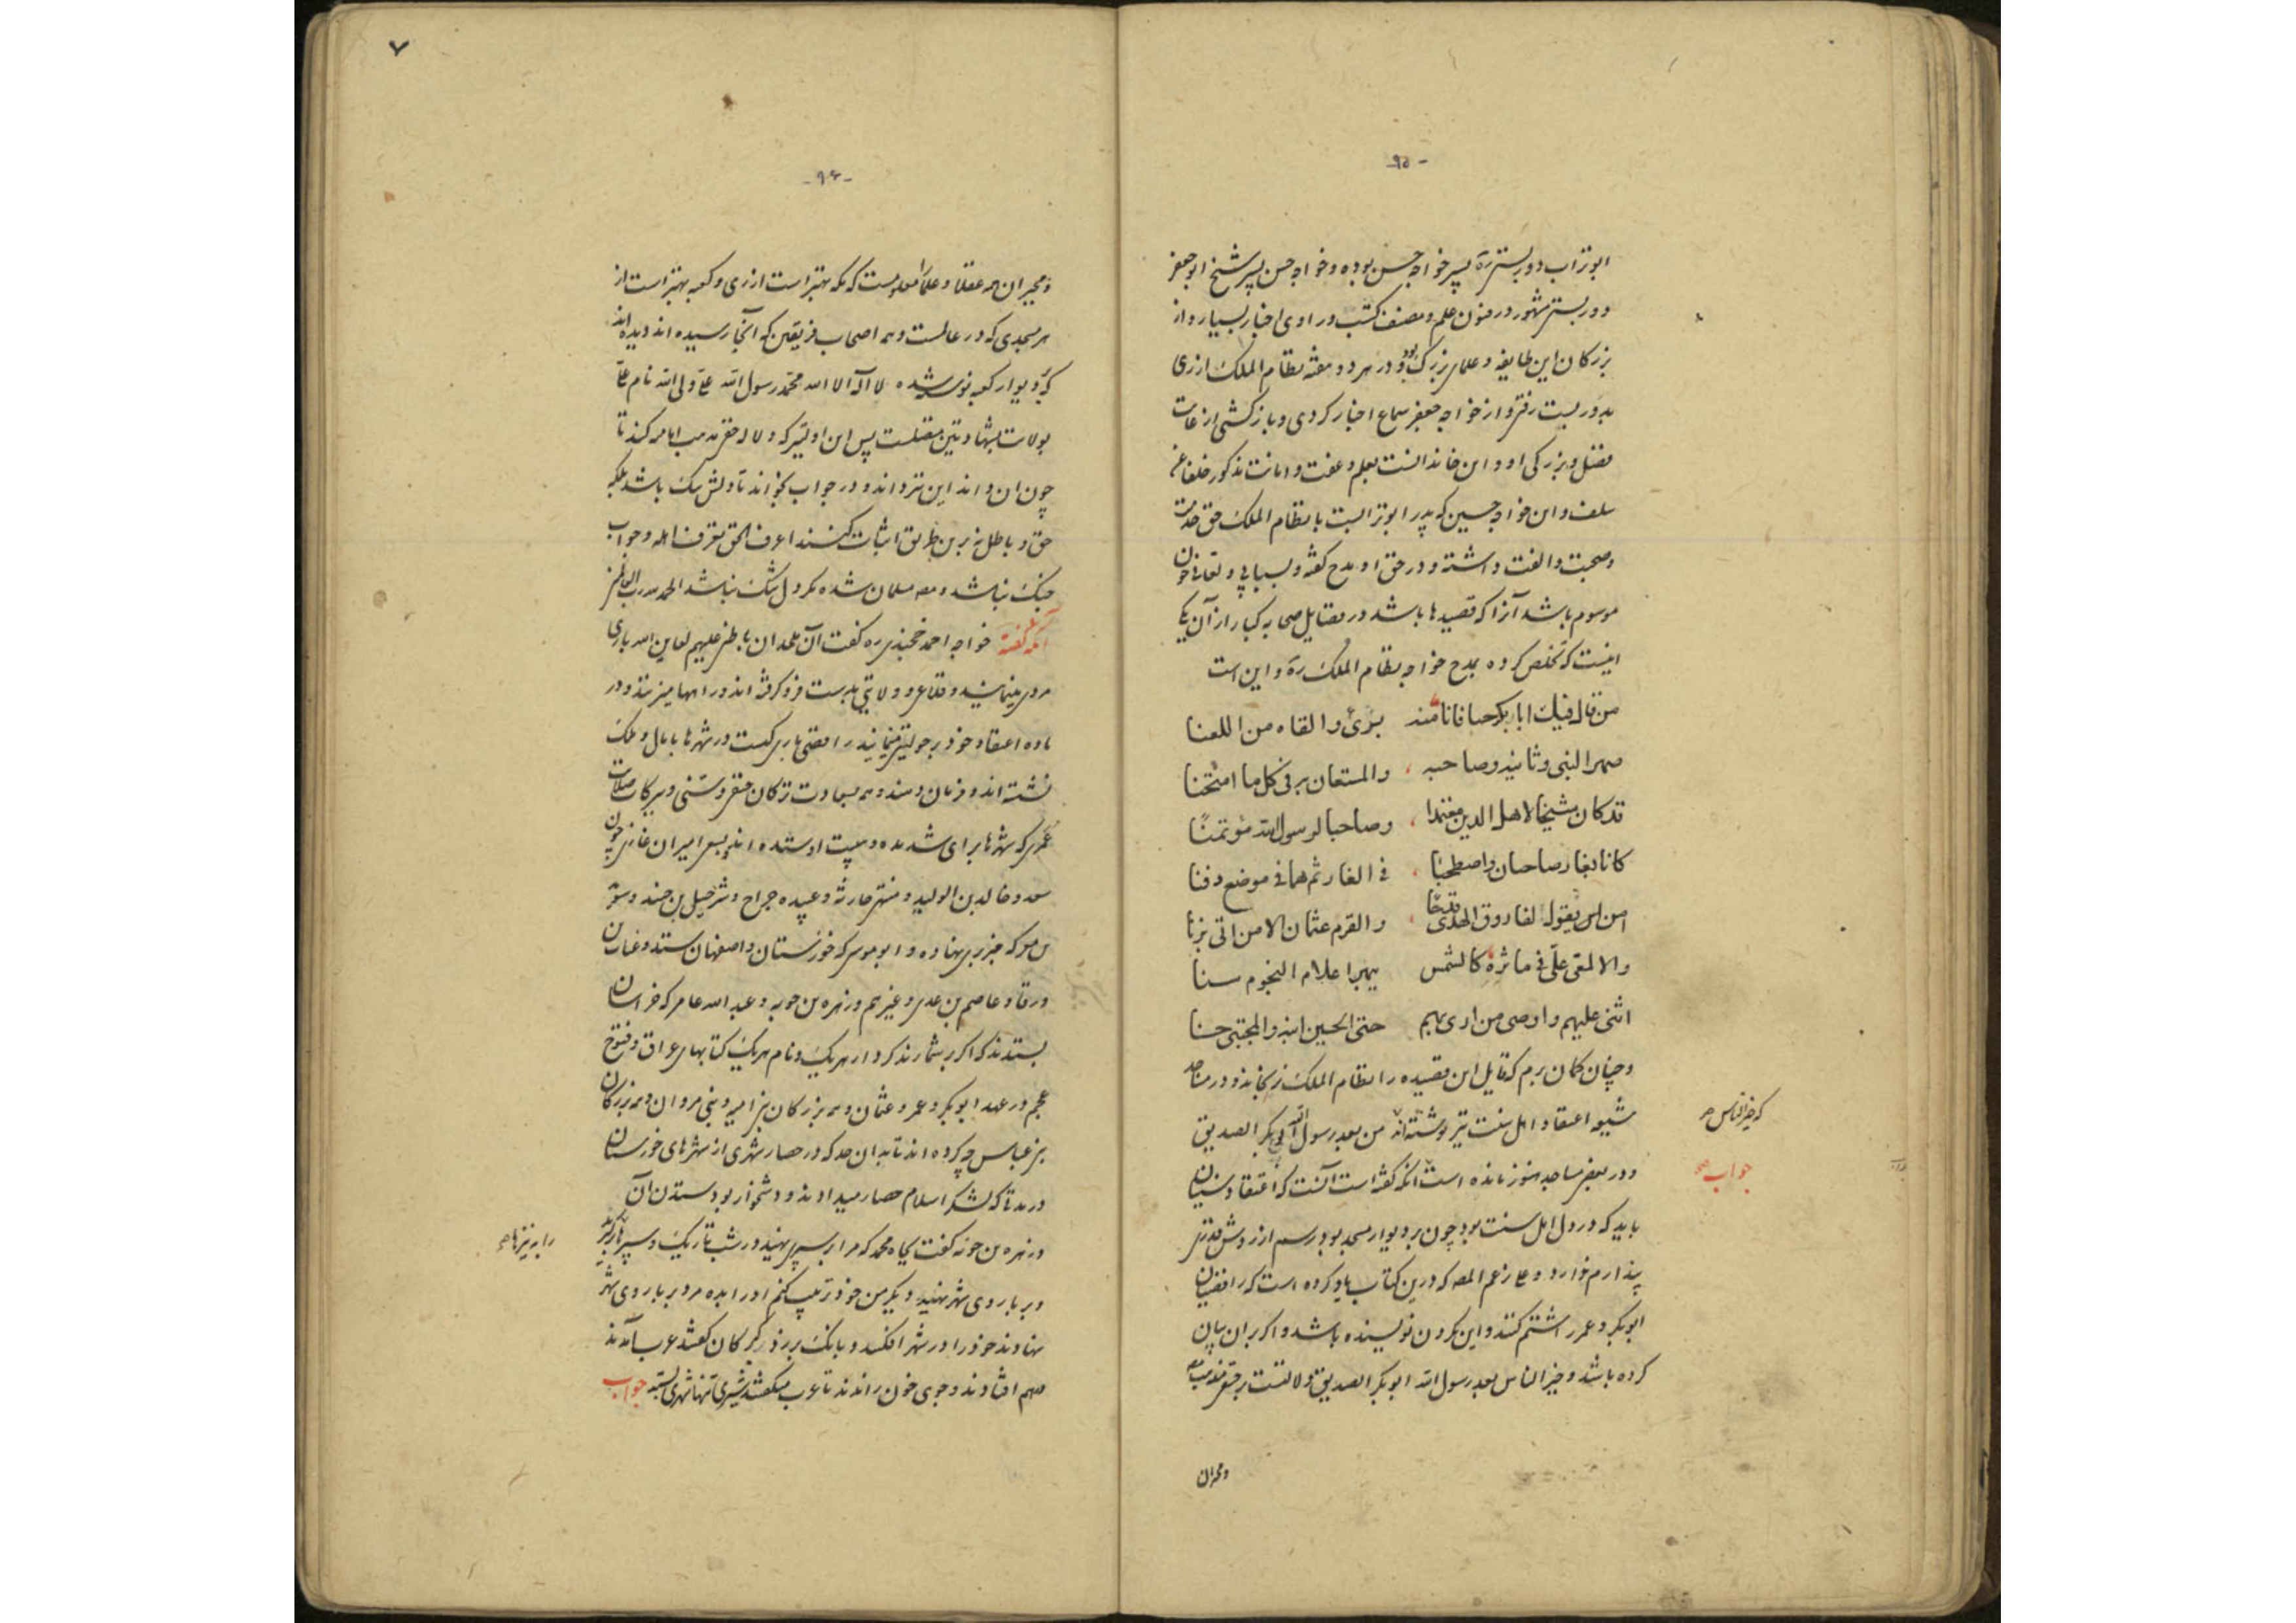 -۹۵-
ابوتراب دوریستی ره پسر خواجه حسن بوده و خواجه حسن پسر شیخ ابوجعفر
دوریستی مشهور در فنون علم و مصنف کتب و راوی اخبار بسیار و از
بزرکان این طایفه و علمای بزرک بود و در هر دو هفته نظام الملک از ری
بدوریست رفتی و از خواجه جعفر سماع اخبار کردی و بازکشتی از غایت
فضل و بزرکی او و این خاندانست بعلم و عفت و امانت مذکور خلفا عن
سلف و ان خواجه حسین که پدر ابوترابست با نظام الملک حق خدمت
و صحبت و الفت داشته و در حق او مدح کفته و
موسوم باشد آنرا که قصیدها باشد در مقابل صحابه کبار از آن یکی
اینست که تخلص کرده بمدح خواجه نظام الملک ره و این است
من قال فیک ابابکر خنا فانا منه بریء والقاه من اللعنا
صهر النبی وثانیه وصاحبه والمستعان به فی کل ما امتحنا
قد کان شیخا لاهل الدین مقتدا وصاحبا لرسول الله مؤتمنا
کانا بغار صاحبان واصطحبا فی الغار ثم هما فی موضع دفنا
امن یقول لفاروق الهدی قبحا والقرم عثمان الا من اتی بزنا
والالمعی علی فی ماثره کالشمس یبهر اعلام النجوم سنا
اثنی علیهم واوصی من اری بهم حتی الحسین ابنه والمجتبی حسنا
و چنان کمان برم که قایل این قصیده را نظام الملک نرنجاند و در مساجد
شیعه اعتقاد اهل سنت نیز نوشته‌اند من بعد رسول الله ابی بکر الصدیق
که خیر الناس صح
و در بعضی مساجد هنوز مانده است انکه کفته است آنست که اعتقاد سنیان
جواب صح
باید که در دل اهل سنت بود چون بر دیوار مسجد بود رسم از روش قدر
پندارم ندارد و علی زعم المصنف که درین کتاب یاد کرده است که رافضیان
ابوبکر و عمر را شتم کنند و این کردن نویسنده باشد و اکر بر ان بیان
کرده باشد و خیر الناس بعد رسول الله ابوبکر الصدیق دلالتست بر حقی مذهب
ومجبران
۷
-۹۶-
ومجبران همه عقلا و علما را معلومست که مکه بهتر است از ری و کعبه بهتر است از
هر مسجدی که در عالمست و همه اصحاب فریقین که آنجا رسیده اند دیده اند
که بر دیوار کعبه نوشته شده لا اله الا الله محمد رسول الله علی ولی الله نام علی
بولایت بشهادتین متصلست پس این اولیتر که دلالت حقی مذهب امامیه کند تا
چون ان داند این نیز داند و در جواب بخواند تا دلش سبک باشد بلکه
حق و باطل نه برین طریق اثبات کنند اعرف الحق تعرف اهله و جواب
جنک نباشد و مصنف مسلمان شده مکر دل تنک نباشد الحمد لله رب العالمین
آنکه کفته خواجه احمد خجندی ره کفت آن ملحدان باطنی علیهم لعاین الله باری
مردی مینمایند و قلاع و ولایتی بدست فرو کرفته اند و راهها میزنند و در
ماده اعتقاد خود بر جولیتی مینمایند رافضی باری کیست در شهرها با مال و ملک
نشسته اند و فرمان دهند و همه بسعادت ترکان حنفی و سنی و ببرکات صلابت
عمری که شهرها برای شده و بهیبت او ستده اند و بسعی امیران غازی چون
سعد و خالد بن الولید و مثنی حارثه و عبیده جراح و شرحبیل بن حسنه و
و ابو موسی که خوزستان و اصفهان ستد و غسان
ورقا و عاصم بن عدی و غیرهم و زهره بن حویه و عبد الله عامر که خراسان
بستدند که اکر بشمارند کردار هریک و نام هریک کتابهای عراق و فتوح
عجم در عهد ابوبکر و عمر و عثمان و همه بزرکان بنی امیه و بنی مروان و همه بزرکان
بنی عباس چه کرده اند تا بدان حد که در حصار شهری از شهرهای خوزستان
درمدتی که لشکر اسلام حصار میدادند و دشخوار بود ستدن آن
زهره بن حویه کفت بجاه محمد که مرا بر سپر نهید در شب تاریک و سپر
را بر نیزها صح
و بر باروی شهر نهید دیکر من خود ترتیب کنم او را بدو مرد بر باروی شهر
نهادند خود را در شهر افکند و بانک بر زد کبرکان کفتند عرب آمدند
بهم افتادند و جوی خون راندند تا عرب میکفتند شیری تنها شهری بستد جواب